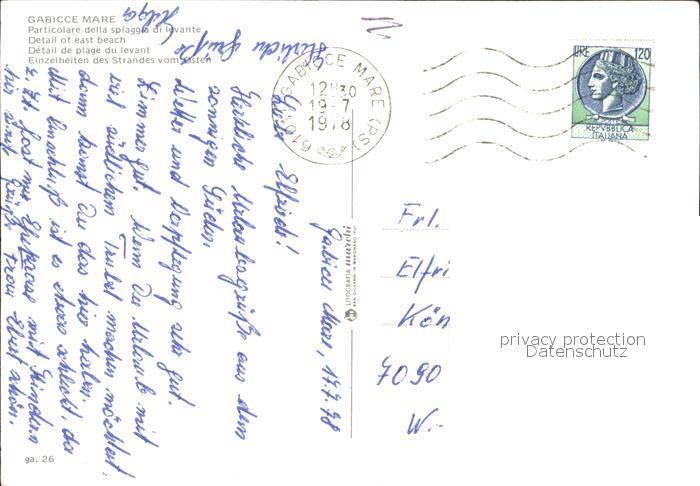 GABICCE MARE
Particolare della spiaggia di levante
Detail of east beach
Détail de plage du levant
Einzelheiten des Strandes vom Osten
61011 GABICCE MARE (PS)
12 30
19-7
1978
LIRE 120
REPUBBLICA
ITALIANA
Gabicce Mare, 17.7.78
Liebe Elfriede!
Herzliche Urlaubsgrüße aus dem
sonnigen Süden.
Wetter und Verpflegung sehr gut.
Zimmer gut. Wenn Du Urlaub mit
viel südlichem Trubel machen möchtest
dann kannst Du das hier haben.
Mit Anschluß ist es etwas schlecht, da
z. Zt. fast nur Ehepaare mit Kindern
hier sind. Grüße Frau Ebert schön.
Herzliche Grüße
Helga
Frl.
Elfri
Kön
7090
W.-
LITOGRAFIA
privacy protection
Datenschutz
ga. 26